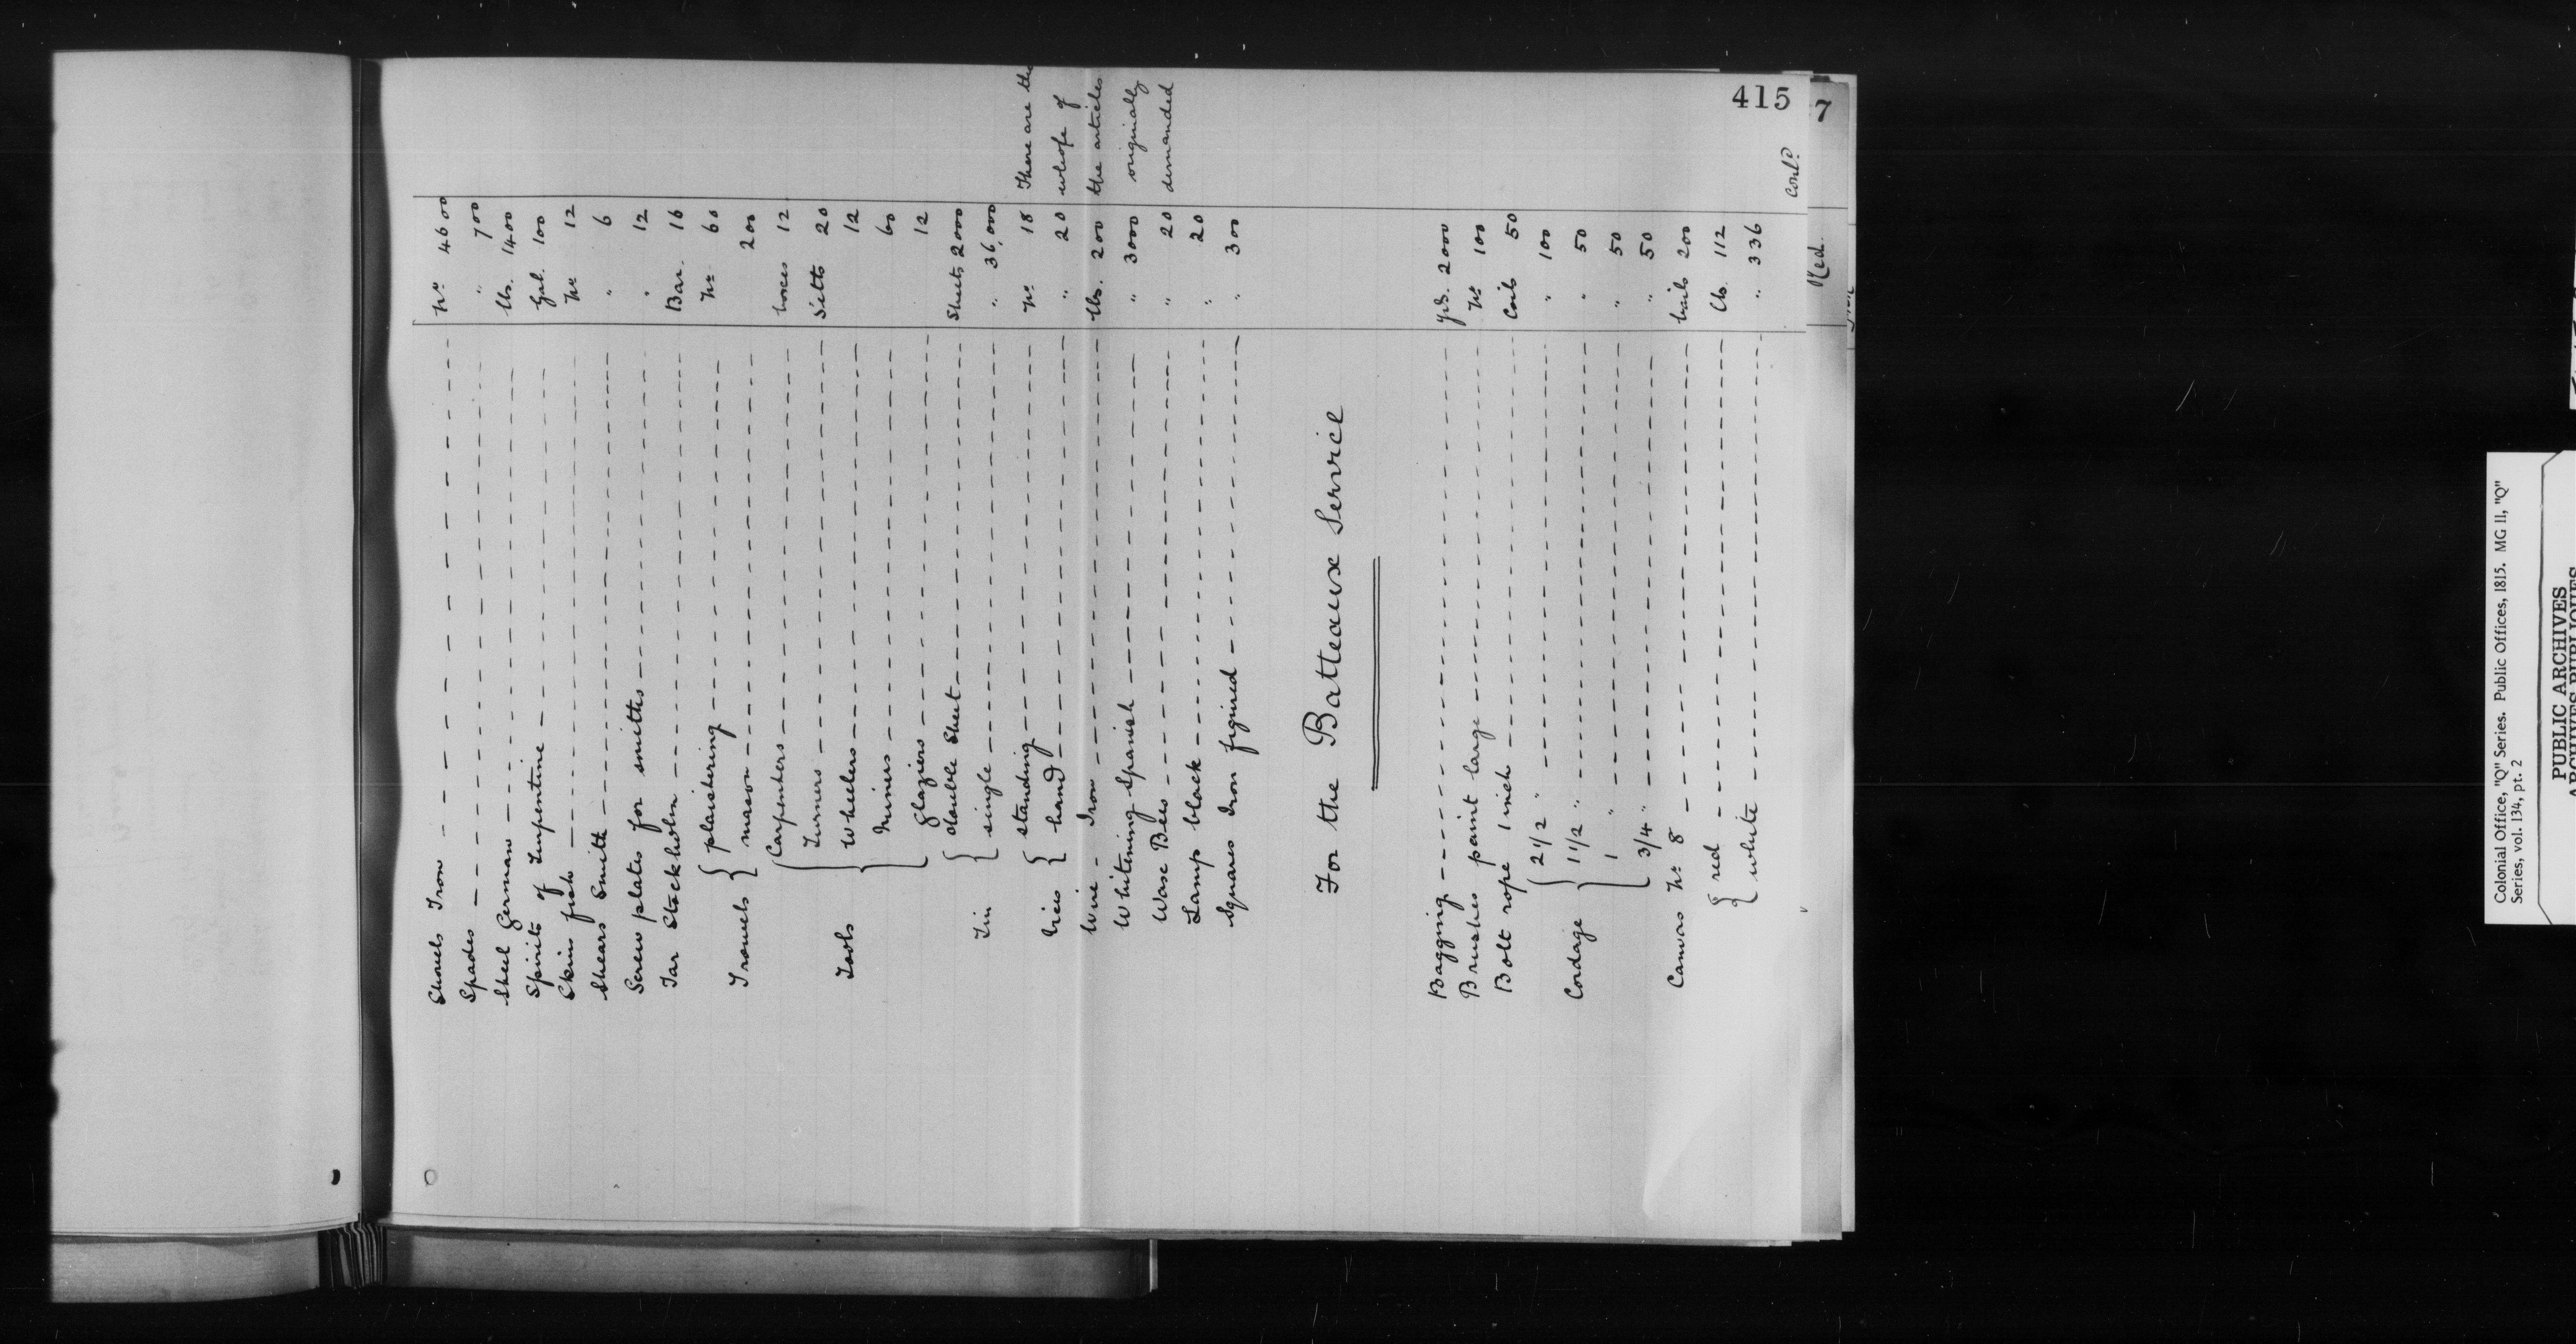 415
Shovels Iron Nº 4600
Spades " 700
Steel German lbs. 1400
Spirits of Turpentine Gal. 100
Skins fish Nº 12
Shears Smith " 6
Screw plates for smiths " 12
Tar Stockholm Bar. 16
Trowels { plaistering Nº 60
mason 200
Tools { Carpenters boxes 12
Turners Setts 20
Wheelers 12
Miners 60
Glaziers 12
Tin { double Sheet Sheets 2000
single " 36,000
Vices { standing Nº 18 These are the
hand " 20 whole of
Wire - Iron lbs. 200 the articles
Whitening Spanish " 3000 originally
Wax Bees " 20 demanded
Lamp black " 20
Squares Iron figured " 300
For the Batteaux Service
Bagging yds. 2000
Brushes paint large Nº 100
Bolt rope 1 inch Coils 50
Cordage { 2 1/2 " " 100
1 1/2 " " 50
1 " " 50
3/4 " " 50
Canvas Nº 8 bails 200
{ red lb. 112
white " 336
Contd.
7
Colonial Office, "Q" Series. Public Offices, 1815. MG 11, "Q"
Series, vol. 134, pt. 2
PUBLIC ARCHIVES
ARCHIVES PUBLIQUES